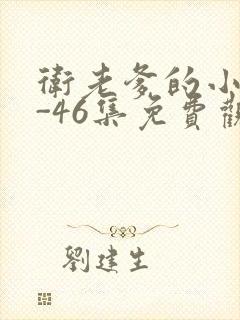 衛老爹的小
-46集免費觀
劉建生